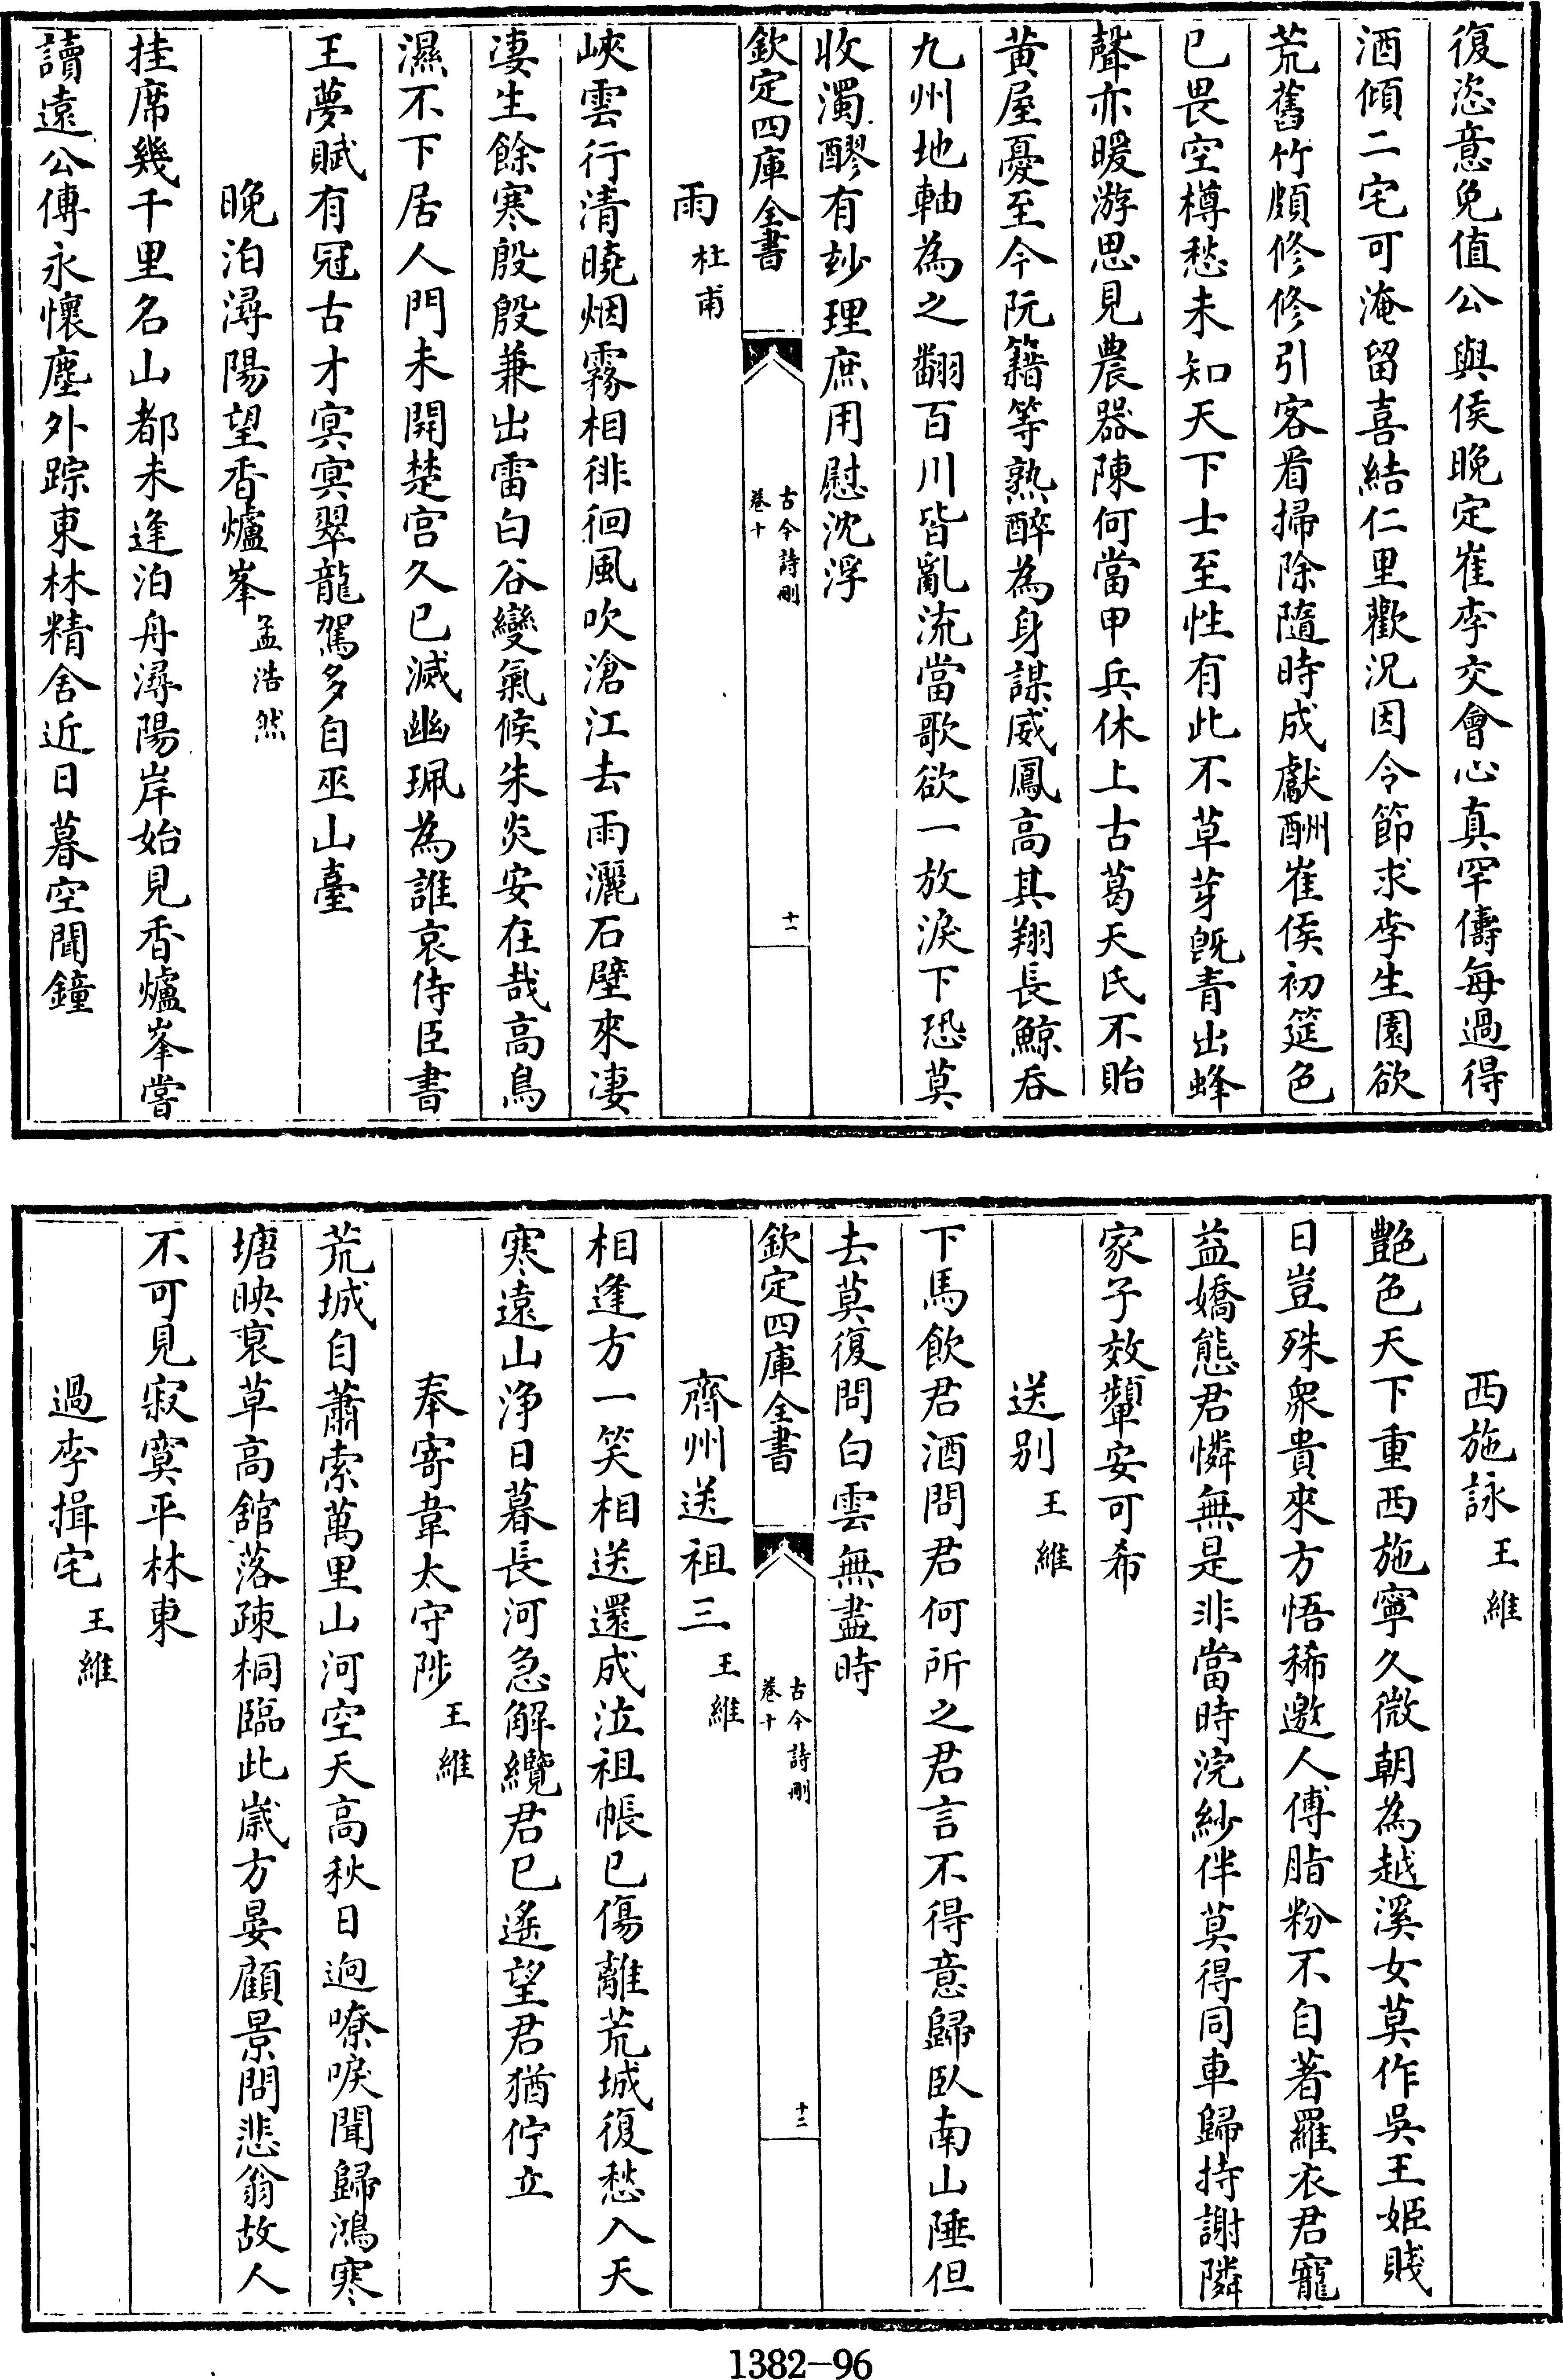 復恣意免值公與侯晚定崔李交會心真罕儔每過得
酒傾二宅可淹留喜結仁里歡況因令節求李生園欲
荒舊竹頗修修引客看掃除隨時成獻酬崔侯初筵色
已畏空樽愁未知天下士至性有此不草芽旣青出蜂
聲亦暖游思見農器陳何當甲兵休上古葛天氏不貽
黄屋憂至今阮籍等熟醉為身謀威鳳高其翔長鯨吞
九州地軸為之翻百川皆亂流當歌欲一放淚下恐莫
收濁醪有妙理庶用慰沈浮
欽定四庫全書
古今詩刪
卷十
十一
雨 杜甫
峽雲行清曉烟霧相徘徊風吹滄江去雨灑石壁來凄
凄生餘寒殷殷兼出雷白谷變氣候朱炎安在哉高鳥
濕不下居人門未開楚宫久已滅幽珮為誰哀侍臣書
王夢賦有冠古才冥冥翠龍駕多自巫山臺
晚泊潯陽望香爐峯 孟浩然
挂席幾千里名山都未逢泊舟潯陽岸始見香爐峯嘗
讀遠公傳永懷塵外踪東林精舍近日暮空聞鐘
西施詠 王維
艷色天下重西施寧久微朝為越溪女莫作吳王姬賤
日豈殊衆貴來方悟稀邀人傅脂粉不自著羅衣君寵
益嬌態君憐無是非當時浣紗伴莫得同車歸持謝隣
家子效顰安可希
送别 王維
下馬飲君酒問君何所之君言不得意歸臥南山陲但
去莫復問白雲無盡時
欽定四庫全書
古今詩刪
卷十
十二
齊州送祖三 王維
相逢方一笑相送還成泣祖帳已傷離荒城復愁入天
寒遠山浄日暮長河急解纜君已遙望君猶佇立
奉寄韋太守陟 王維
荒城自蕭索萬里山河空天高秋日逈嘹唳聞歸鴻寒
塘映衰草高館落疎桐臨此歲方晏顧景問悲翁故人
不可見寂寞平林東
過李揖宅 王維
1382-96